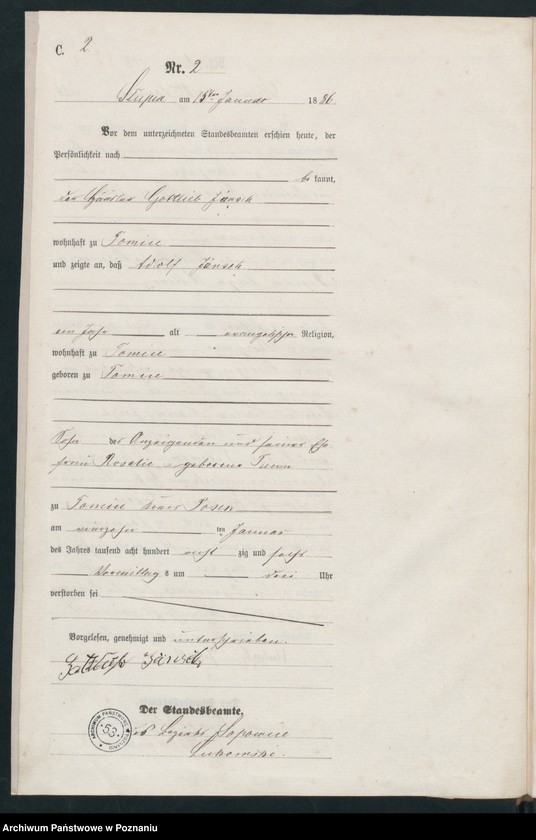 C. 2
Nr. 2
Słupia am 15ten Januar 1886
Vor dem unterzeichneten Standesbeamten erschien heute, der
Persönlichkeit nach
be kannt,
der Häusler Gottlieb Jänsch
wohnhaft zu Tomice
und zeigte an, daß Adolf Jänsch
ein Jahr alt evangelischer Religion,
wohnhaft zu Tomice
geboren zu Tomice
Sohn des Anzeigenden und seiner Ehe-
frau Rosalie geborene
zu Tomice Kreis Posen
am vierzehn ten Januar
des Jahres tausend acht hundert acht zig und sechs
Vormittag s um drei Uhr
verstorben sei
Vorgelesen, genehmigt und unterschrieben.
Gottlieb Jänsch
Der Standesbeamte.
des Bezirks Sapowice
ARCHIWUM PAŃSTWOWE W POZNANIU
53
Archiwum Państwowe w Poznaniu